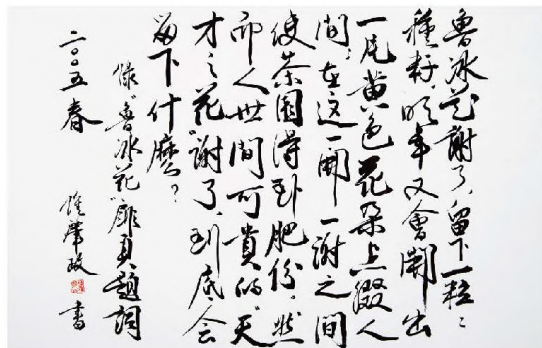 魯冰花謝了,留下一粒粒
種籽,明年又會開出
一片黃色花朵點綴人
間,在這一開一謝之間
使茶園得到肥份,然
而人世間可貴的“天
才之花”謝了,到底會
留下什麼?
錄“魯冰花”扉頁題詞
二〇〇五春
鍾肇政 書